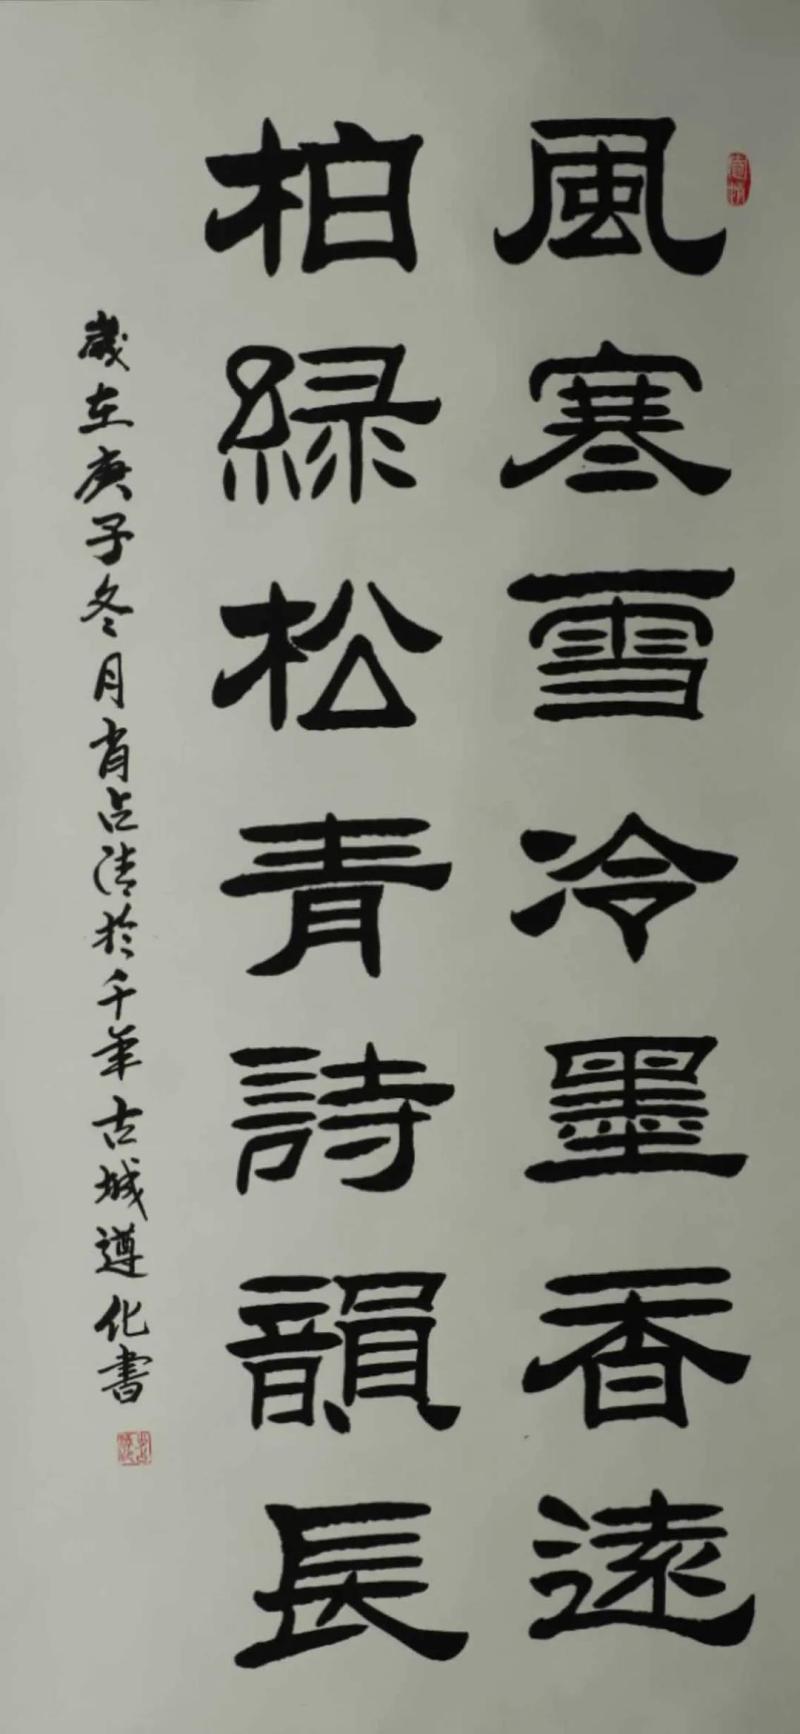 風寒雪冷墨香遠
柏緑松青詩韻長
歲在庚子冬月肖占清於千年古城遵化書